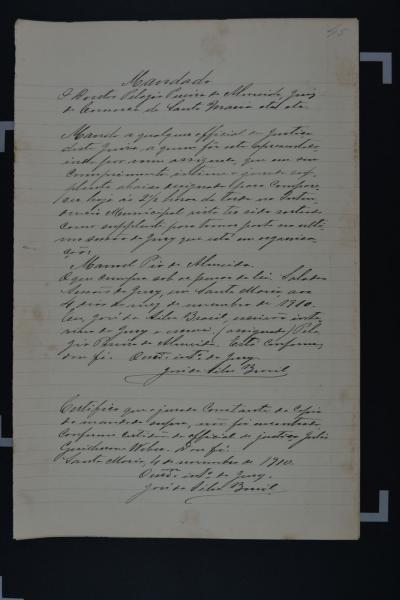 45
Mandado
O Doutor Pelagio Pereira de Almeida, Juiz
da Comarca de Santa Maria etc. etc.
Mando a qualquer official de Justiça
deste Juizo, a quem fôr este apresentado,
indo por mim assignado, que em seu
cumprimento intime o jurado sup-
plente abaixo designado para compare-
cer hoje ás 2½ horas da tarde na Inten-
dencia Municipal visto ter sido sorteado
como supplente para tomar parte na ulti-
ma sessão do Jury que está em organisa-
ção:
Manoel Pio de Almeida.
O que cumpra sob as penas da lei. Sala das
Sessões do Jury, em Santa Maria, aos
4 dias do mez de novembro de 1910.
Eu, José da Silva Brasil, escrivão inte-
rino do Jury o escrevi. (assignado) Pela-
gio Pereira de Almeida. Está conforme,
dou fé. O escrº intº do Jury
José da Silva Brasil
Certifico que o jurado constante da copia
do mandado supra, não foi encontrado,
conforme certidão do official de justiça Julio
Guilherme Weber. Dou fé.
Santa Maria, 4 de novembro de 1910.
O escrº intº do Jury,
José da Silva Brasil.